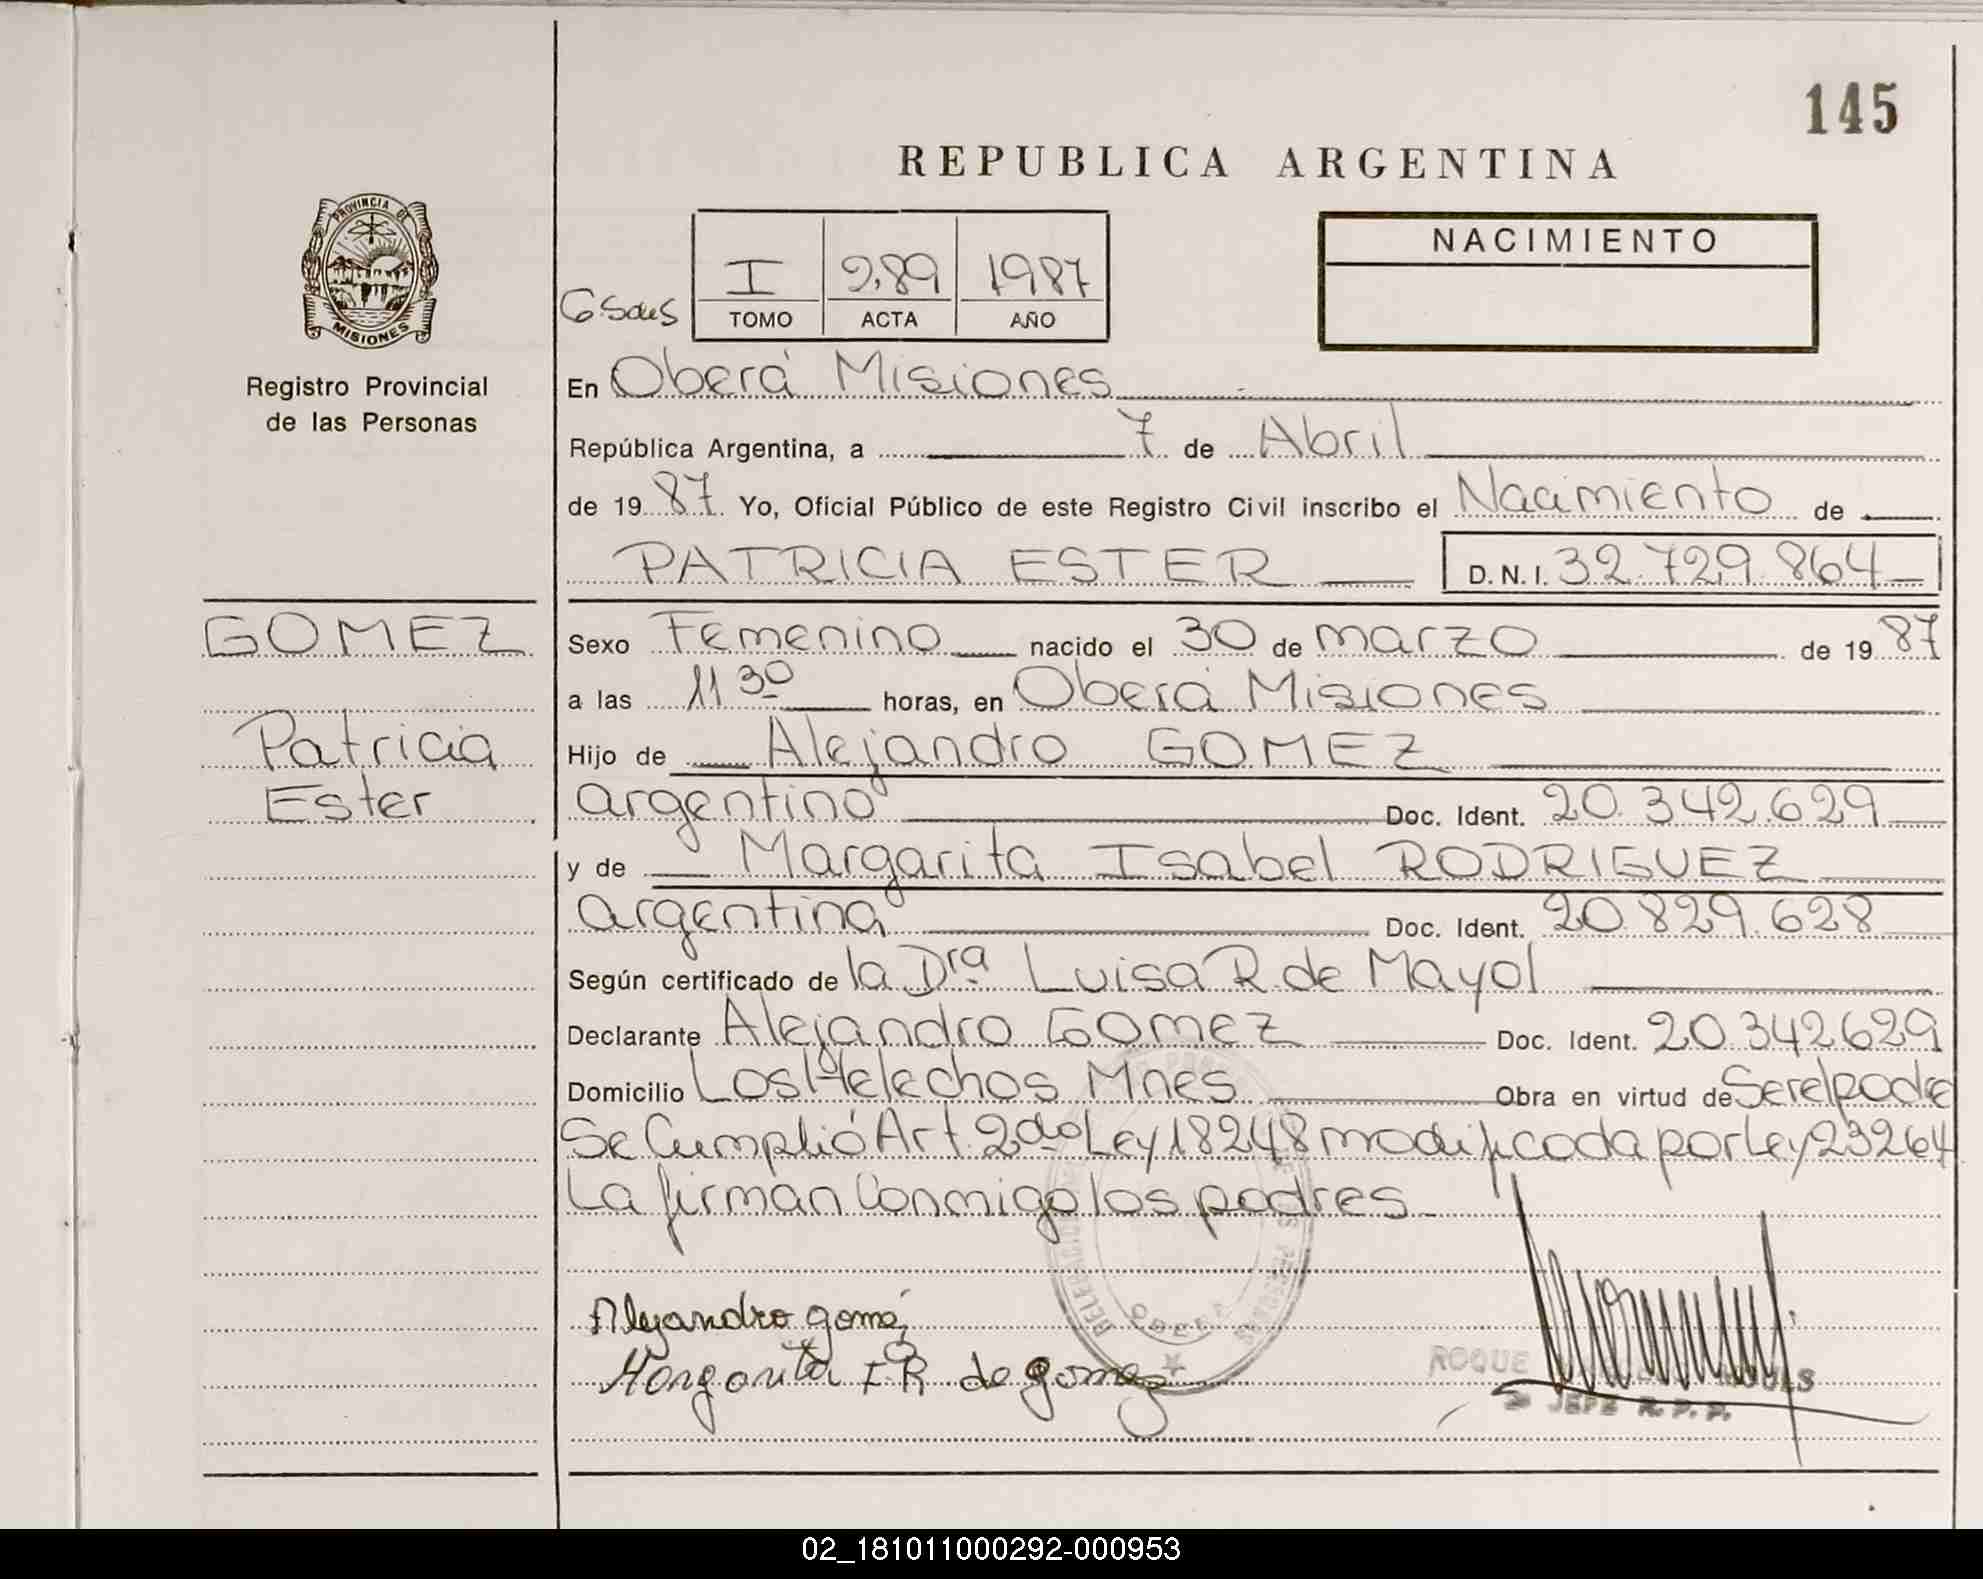 145
REPUBLICA ARGENTINA
PROVINCIA DE
MISIONES
Registro Provincial
de las Personas
I 289 1987
TOMO ACTA AÑO
NACIMIENTO
En Oberá Misiones
República Argentina, a 7 de Abril
de 1987 Yo, Oficial Público de este Registro Civil inscribo el Nacimiento de
PATRICIA ESTER D.N.I. 32.729.864
GOMEZ
Patricia
Ester
Sexo Femenino nacido el 30 de marzo de 1987
a las 11 30 horas, en Oberá Misiones
Hijo de Alejandro GOMEZ
argentino Doc. Ident. 20.342.629
y de Margarita Isabel RODRIGUEZ
argentina Doc. Ident. 20.829.628
Según certificado de la Dra. Luisa R. de Mayol
Declarante Alejandro GOMEZ Doc. Ident. 20.342.629
Domicilio Los Helechos Mnes Obra en virtud de Ser el padre
Se Cumplió Art. 2do Ley 18248 modificada por Ley 23264
La firman Conmigo los padres
Alejandro gomez
Margarita I R de gomez
OBERA
ROQUE
JEFE R. P. P.
02_181011000292-000953